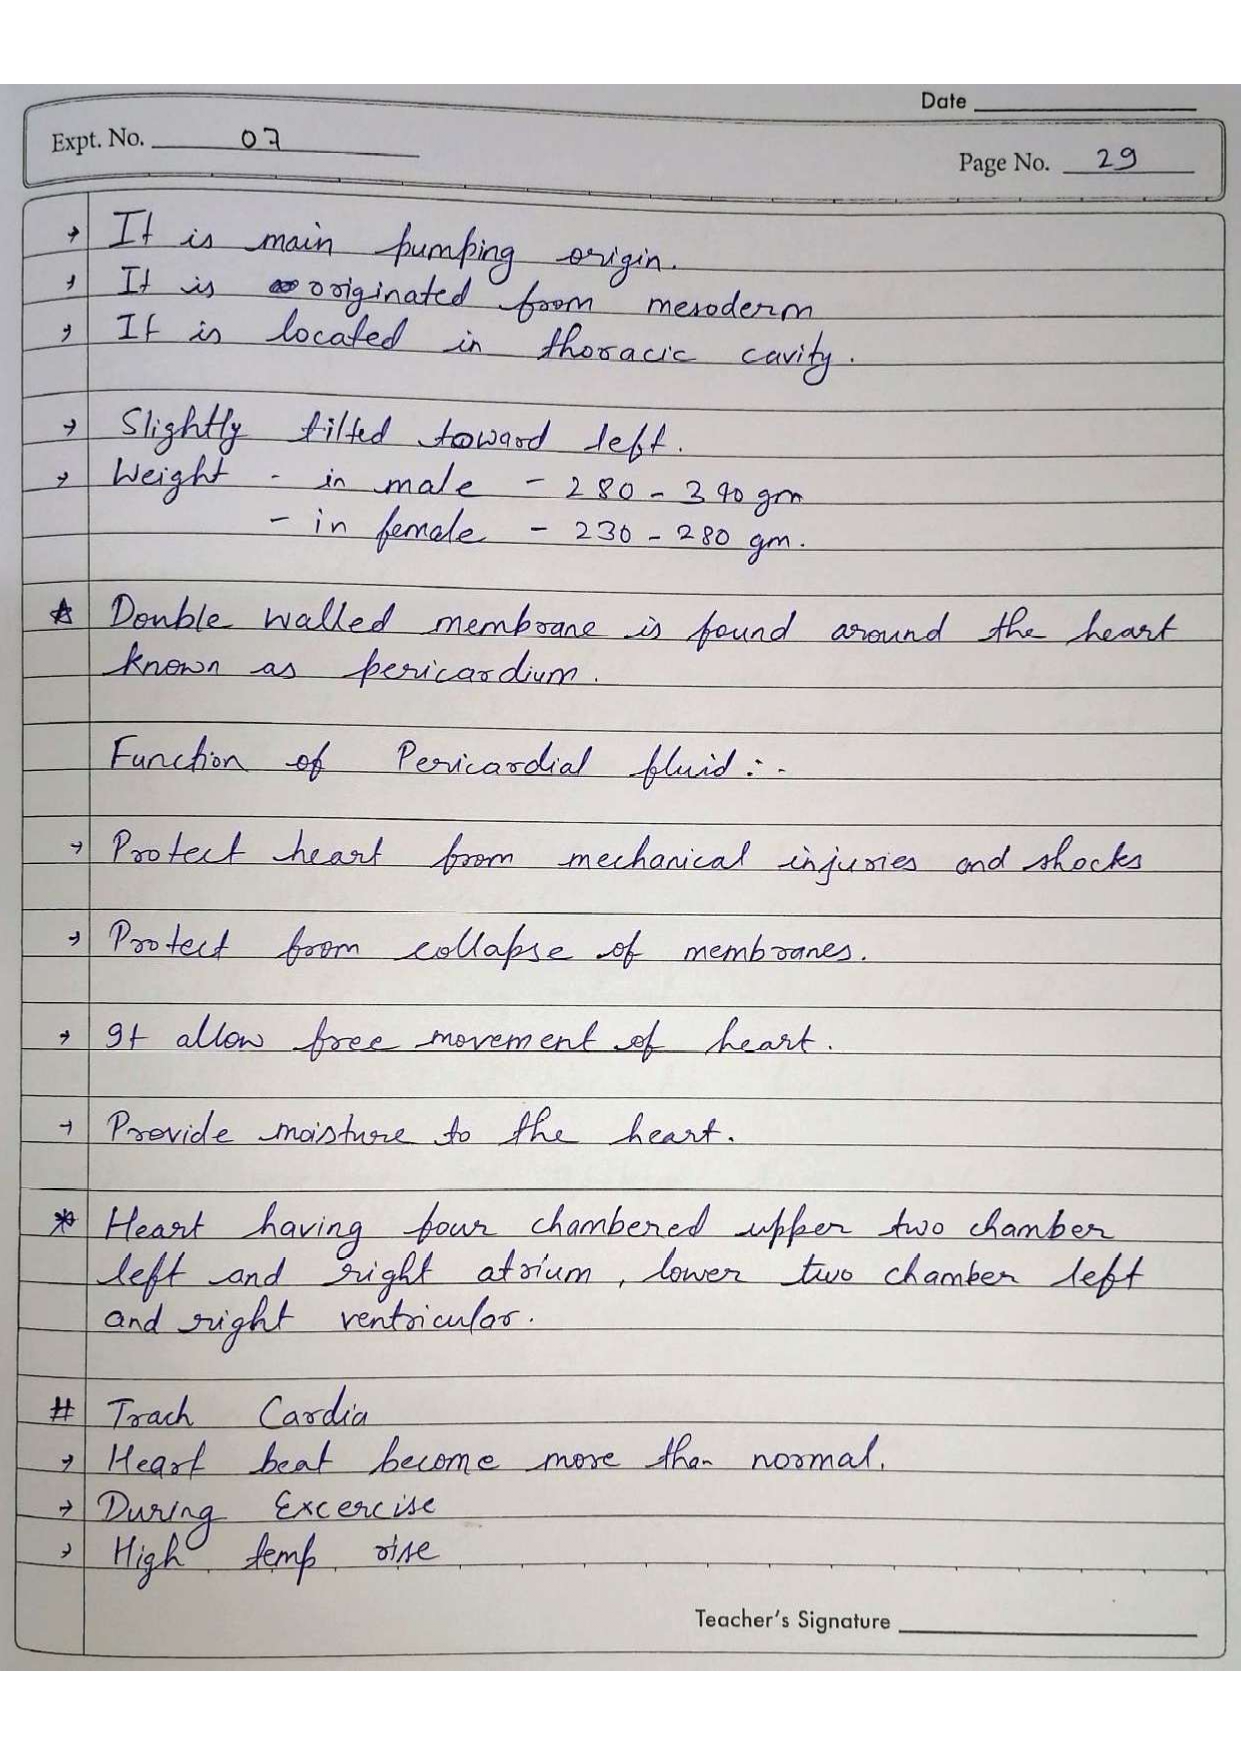 Date
Expt. No. 07
Page No. 29
→ It is main pumping origin.
→ It is originated from mesoderm
→ It is located in thoracic cavity.
→ Slightly tilted toward left.
→ Weight - in male - 280 - 340 gm
- in female - 230 - 280 gm.
☆ Double walled membrane is found around the heart
known as pericardium.
Function of Pericardial fluid :-
→ Protect heart from mechanical injuries and shocks
→ Protect from collapse of membranes.
→ It allow free movement of heart.
→ Provide moisture to the heart.
* Heart having four chambered upper two chamber
left and right atrium, lower two chamber left
and right ventricular.
# Trach Cardia
→ Heart beat become more than normal.
→ During Excercise
→ High temp rise
Teacher's Signature